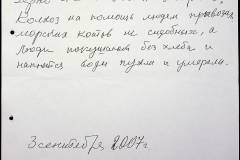 Колхоз на помощь людям привозил
морских котов не съедобных, а
люди покушают без хлеба и
напьются воды пухли и умерали.
3 сентября 2007 г.